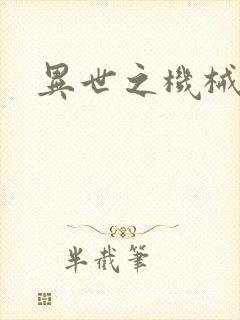 異世之機械
半截筆